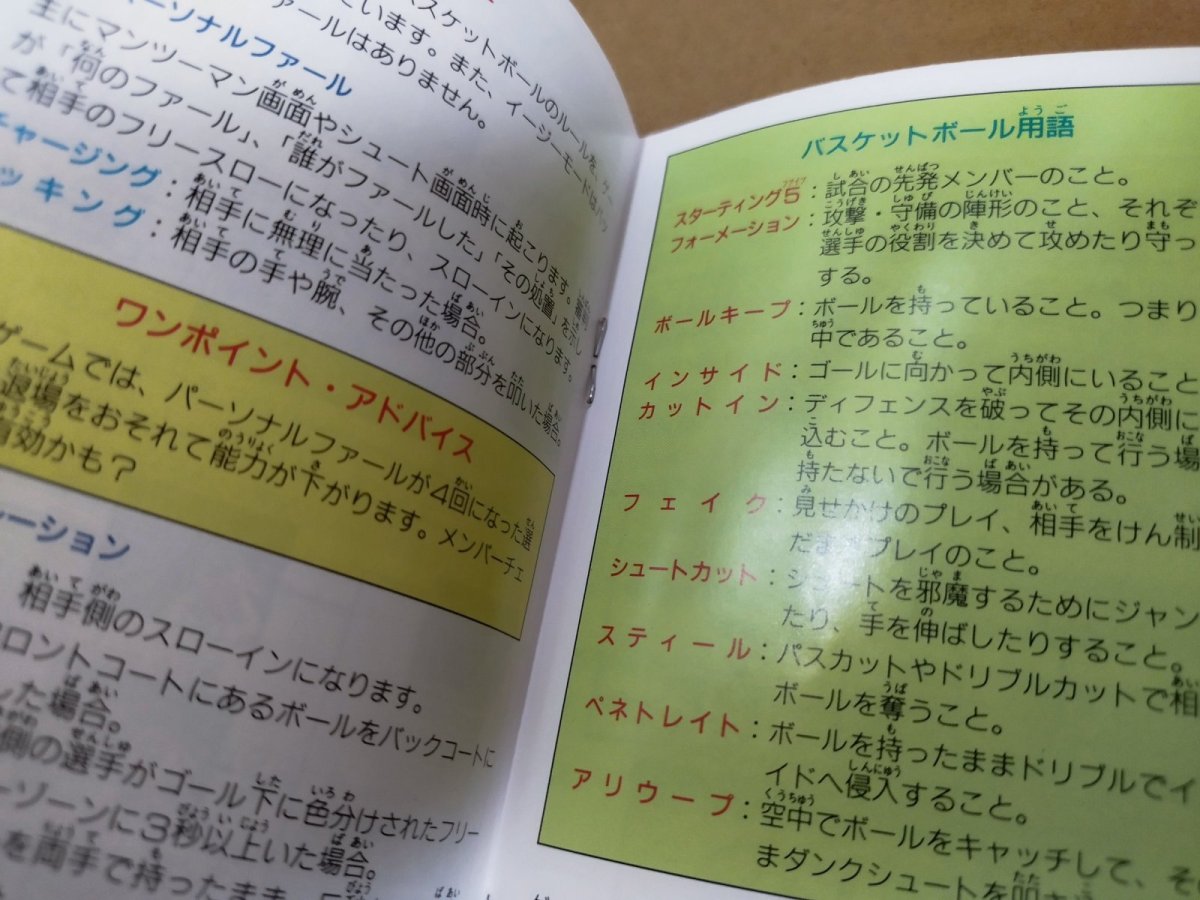 バスケットボールのルールを、ゲ
います。また、イージーモードはバッ
ァールはありません。
ーソナルファール
主にマンツーマン画面やシュート画面時に起こります。審
が「何のファール」、「誰がファールした」「その処置」を示し
て相手のフリースローになったり、スローインになります。
チャージング：相手に無理に当たった場合。
ッキング：相手の手や腕、その他の部分を叩いた場合。
ワンポイント・アドバイス
ゲームでは、パーソナルファールが4回になった選
退場をおそれて能力が下がります。メンバーチェ
有効かも？
レーション
相手側のスローインになります。
フロントコートにあるボールをバックコートに
した場合。
側の選手がゴール下に色分けされたフリー
ーゾーンに3秒以上いた場合。
を両手で持ったまま、「
バスケットボール用語
スターティング5：試合の先発メンバーのこと。
フォーメーション：攻撃・守備の陣形のこと、それぞ
選手の役割を決めて攻めたり守っ
する。
ボールキープ：ボールを持っていること。つまり
中であること。
インサイド：ゴールに向かって内側にいること
カットイン：ディフェンスを破ってその内側に
込むこと。ボールを持って行う場
持たないで行う場合がある。
フェイク：見せかけのプレイ、相手をけん制
だますプレイのこと。
シュートカット：シュートを邪魔するためにジャン
たり、手を伸ばしたりすること。
スティール：パスカットやドリブルカットで相
ボールを奪うこと。
ペネトレイト：ボールを持ったままドリブルでイ
イドへ侵入すること。
アリウープ：空中でボールをキャッチして、そ
まダンクシュートを叩き